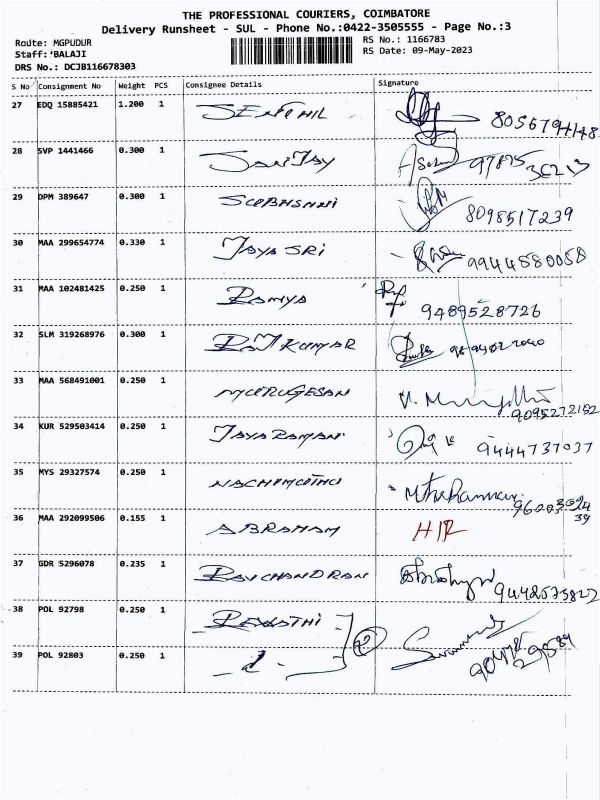 THE PROFESSIONAL COURIERS, COIMBATORE
Delivery Runsheet - SUL - Phone No.:0422-3505555 - Page No.:3
Route: MGPUDUR RS No.: 1166783
Staff:'BALAJI RS Date: 09-May-2023
DRS No.: DCJB116678303
S No Consignment No Weight PCS Consignee Details Signature
27 EDQ 15885421 1.200 1 SENTHIL 8056794148
28 SVP 1441466 0.300 1 SANJAY 97875 36213
29 DPM 389647 0.300 1 SUBHSHNI 8098517239
30 MAA 299654774 0.330 1 JAYA SRI 9944580058
31 MAA 102481425 0.250 1 RAMYA 9489528726
32 SLM 319268976 0.300 1 RAJKUMAR
33 MAA 568491001 0.250 1 MURUGESAN 9095272152
34 KUR 529503414 0.250 1 JAYARAMAN 9444737037
35 MYS 29327574 0.250 1 NACHIMUTHU
36 MAA 292099506 0.155 1 ABRAHAM H/R
37 GDR 5296078 0.235 1 RAVCHANDRAN
38 POL 92798 0.250 1 REVATHI
39 POL 92803 0.250 1